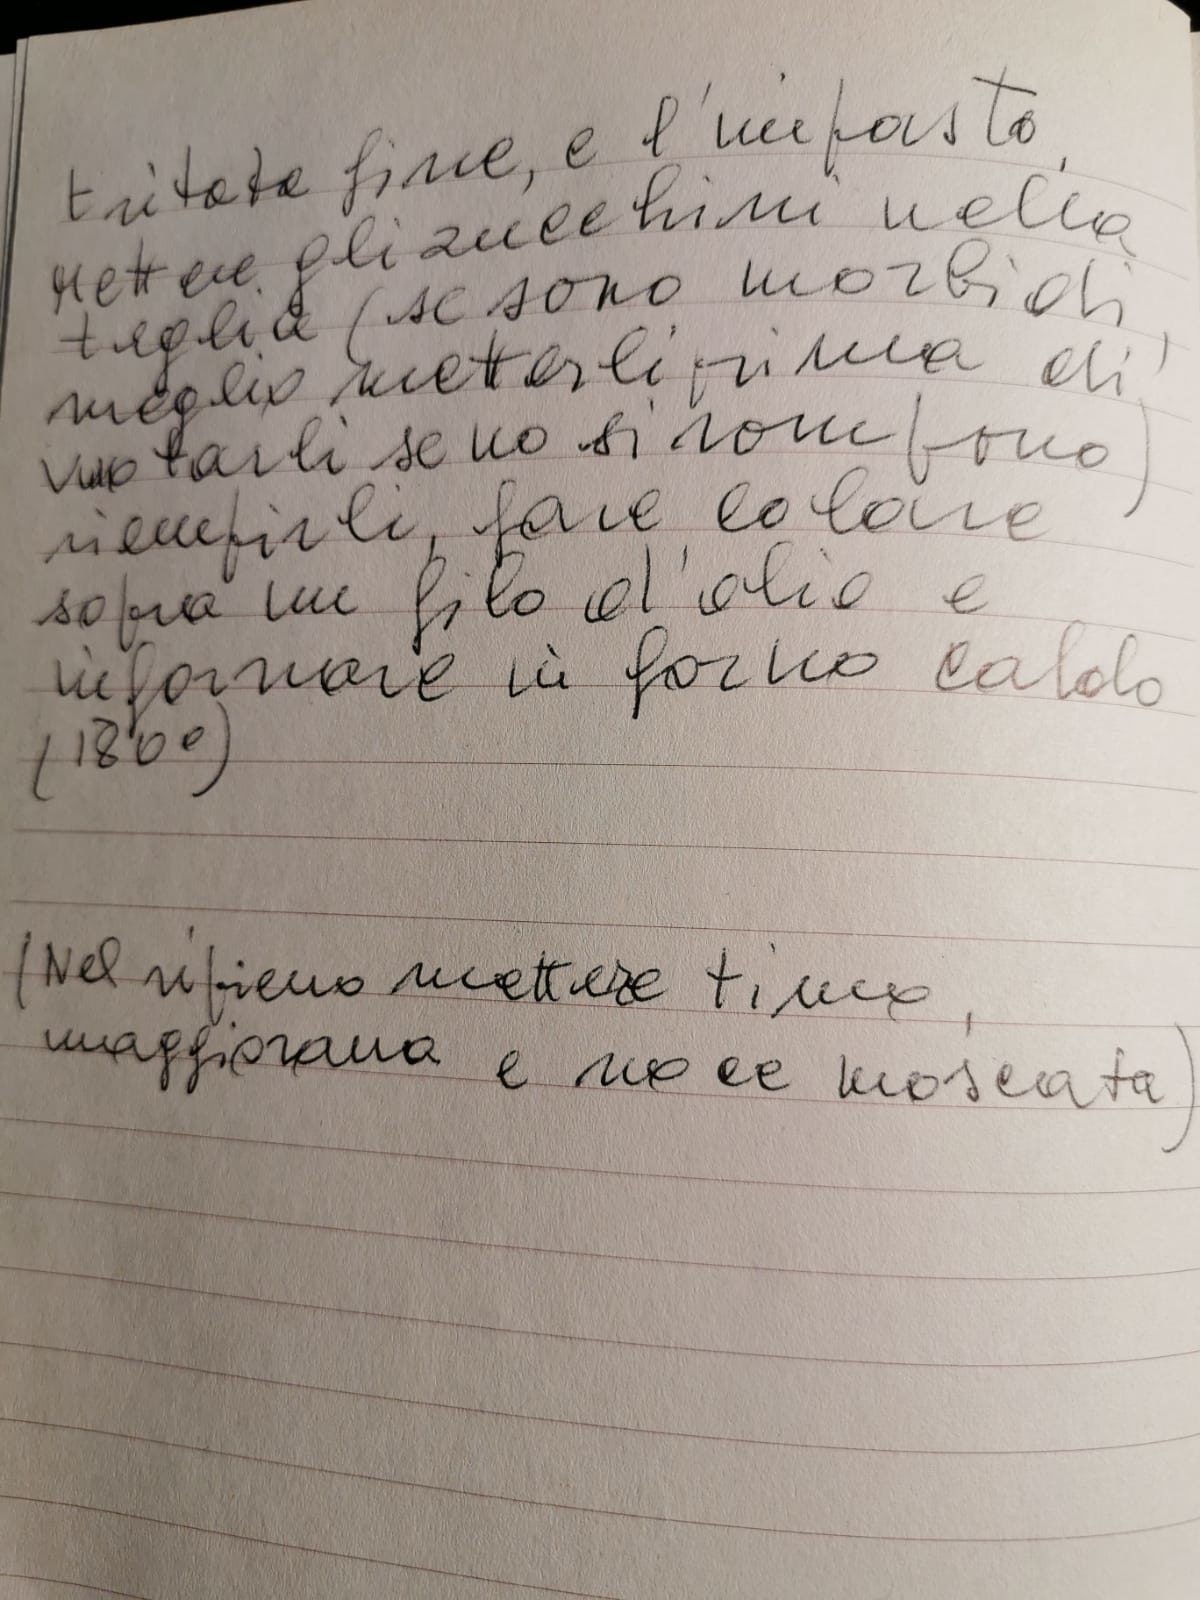 tritata fine, e l'impasto,
mettere gli zucchini nella
teglia (se sono morbidi,
meglio metterli prima di
vuotarli se no si rompono)
riempirli, fare colare
sopra un filo d'olio e
infornare in forno caldo
(180°)
(Nel ripieno mettere timo,
maggiorana e noce moscata)